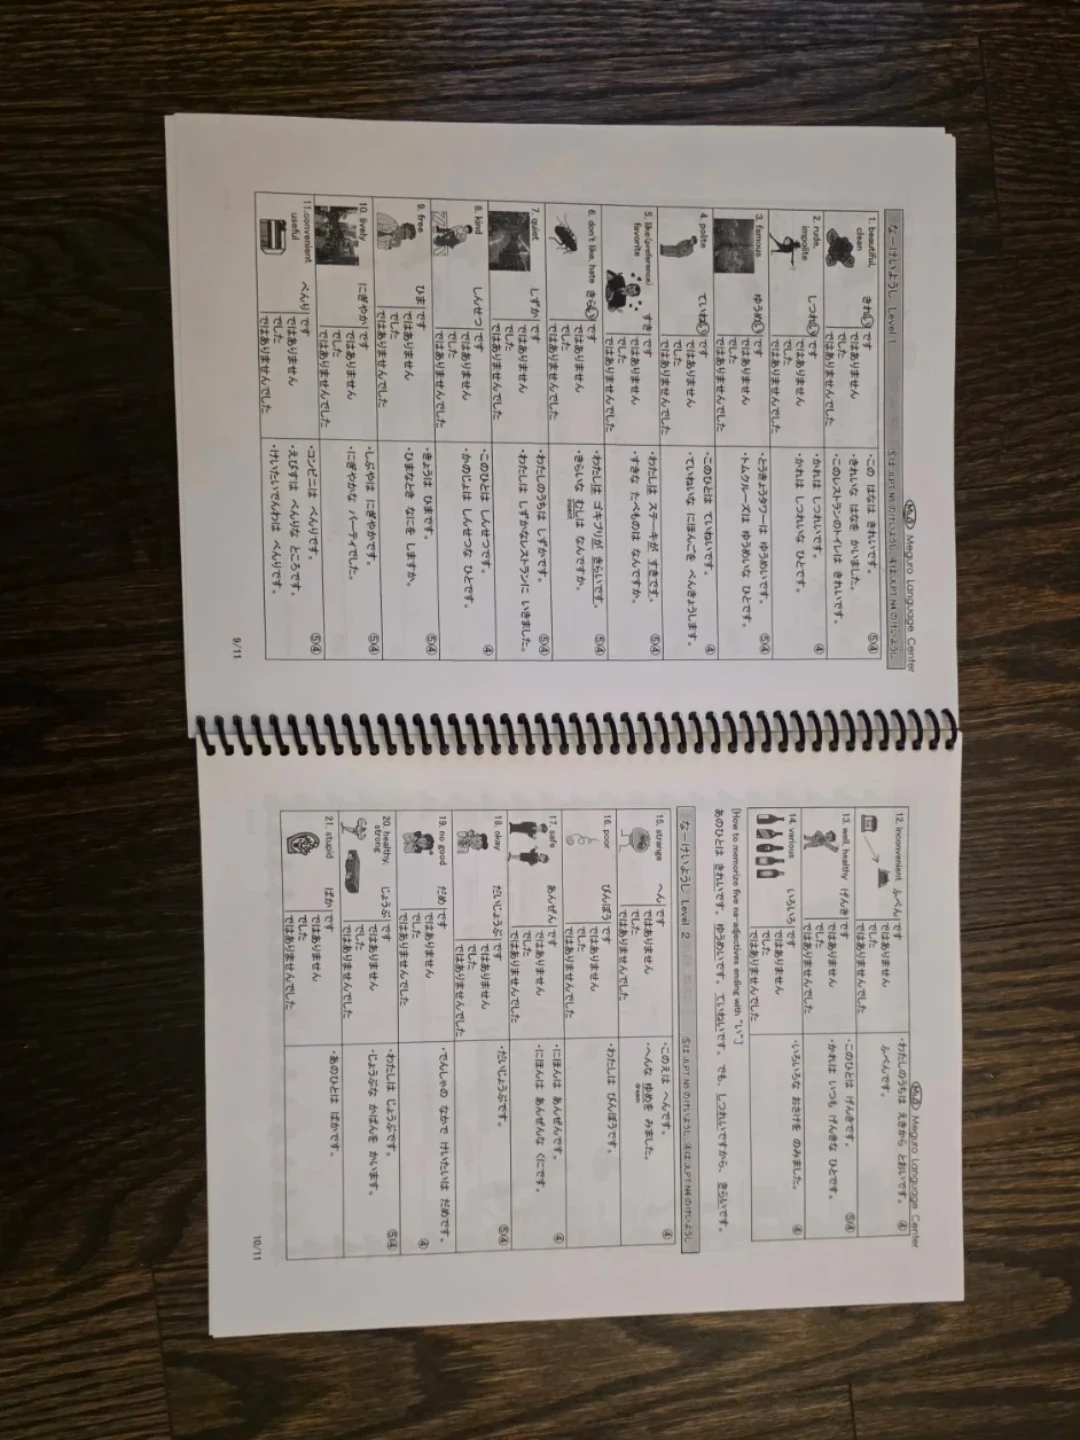 Meguro Language Center
な－けいようし Level 1 ⑤は JLPT N5 のけいようし ④は JLPT N4 のけいようし
1. beautiful, clean
きれいです
ではありません
でした
ではありませんでした
・この はなは きれいです。
・きれいな はなを かいました。
・このレストランのトイレは きれいです。
⑤④
2. rude, impolite
しつれいです
ではありません
でした
ではありませんでした
・かれは しつれいです。
・かれは しつれいな ひとです。
④
3. famous
ゆうめいです
ではありません
でした
ではありませんでした
・とうきょうタワーは ゆうめいです。
・トムクルーズは ゆうめいな ひとです。
⑤④
4. polite
ていねいです
ではありません
でした
ではありませんでした
・このひとは ていねいです。
・ていねいな にほんごを べんきょうします。
④
5. like(preference) favorite
すきです
ではありません
でした
ではありませんでした
・わたしは ステーキが すきです。
・すきな たべものは なんですか。
⑤④
6. don't like, hate
きらいです
ではありません
でした
ではありませんでした
・わたしは ゴキブリが きらいです。
・きらいな むしは なんですか。
insect
⑤④
7. quiet
しずかです
ではありません
でした
ではありませんでした
・わたしのうちは しずかです。
・わたしは しずかなレストランに いきました。
⑤④
8. kind
しんせつです
ではありません
でした
ではありませんでした
・このひとは しんせつです。
・かのじょは しんせつな ひとです。
④
9. free
ひまです
ではありません
でした
ではありませんでした
・きょうは ひまです。
・ひまなとき なにを しますか。
⑤④
10. lively
にぎやかです
ではありません
でした
ではありませんでした
・しぶやは にぎやかです。
・にぎやかな パーティでした。
⑤④
11.convenient useful
べんりです
ではありません
でした
ではありませんでした
・コンビニは べんりです。
・えびすは べんりな ところです。
・けいたいでんわは べんりです。
⑤④
9/11
Meguro Language Center
12. inconvenient
ふべんです
ではありません
でした
ではありませんでした
・わたしのうちは えきから とおいです。
ふべんです。
④
13. well, healthy
げんきです
ではありません
でした
ではありませんでした
・このひとは げんきです。
・かれは いつも げんきな ひとです。
⑤④
14. various
いろいろです
ではありません
でした
ではありませんでした
・いろいろな おさけを のみました。
④
[How to memorize five na-adjectives ending with "い"]
あのひとは きれいです。 ゆうめいです。 ていねいです。 でも、 しつれいですから、 きらいです。
な－けいようし Level 2 ⑤は JLPT N5 のけいようし ④は JLPT N4 のけいようし
15. strange
へんです
ではありません
でした
ではありませんでした
・このえは へんです。
・へんな ゆめを みました。
dream
④
16. poor
びんぼうです
ではありません
でした
ではありませんでした
・わたしは びんぼうです。
17. safe
あんぜんです
ではありません
でした
ではありませんでした
・にほんは あんぜんです。
・にほんは あんぜんな くにです。
④
18. okay
だいじょうぶです
ではありません
でした
ではありませんでした
・だいじょうぶです。
⑤④
19. no good
だめです
ではありません
でした
ではありませんでした
・でんしゃの なかで けいたいは だめです。
④
20. healthy, strong
じょうぶです
ではありません
でした
ではありませんでした
・わたしは じょうぶです。
・じょうぶな かばんを かいます。
⑤④
21. stupid
ばかです
ではありません
でした
ではありませんでした
・あのひとは ばかです。
10/11